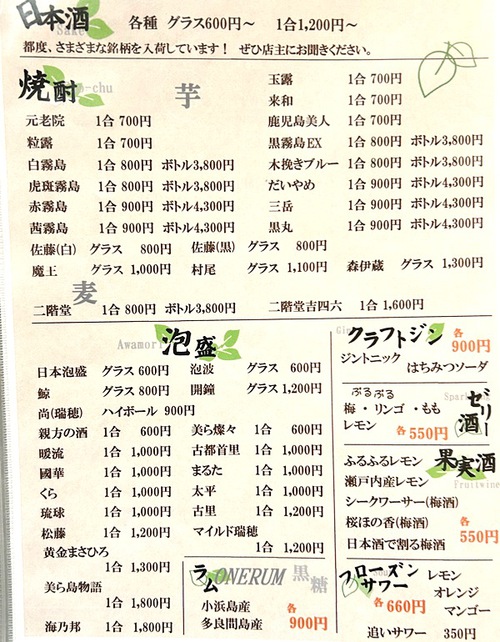 日本酒 各種 グラス600円〜 1合1,200円〜
Sake
都度、さまざまな銘柄を入荷しています！ ぜひ店主にお聞きください。
焼酎
芋
元老院 1合 700円
粒露 1合 700円
白霧島 1合 800円 ボトル3,800円
虎斑霧島 1合 800円 ボトル3,800円
赤霧島 1合 900円 ボトル4,300円
茜霧島 1合 900円 ボトル4,300円
玉露 1合 700円
来和 1合 700円
鹿児島美人 1合 700円
黒霧島EX 1合 800円 ボトル3,800円
木挽きブルー 1合 800円 ボトル3,800円
だいやめ 1合 900円 ボトル4,300円
三岳 1合 900円 ボトル4,300円
黒丸 1合 900円 ボトル4,300円
佐藤(白) グラス 800円 佐藤(黒) グラス 800円
魔王 グラス 1,000円 村尾 グラス 1,100円 森伊蔵 グラス 1,300円
麦
二階堂 1合 800円 ボトル3,800円 二階堂吉四六 1合 1,600円
Awamori 泡盛
日本泡盛 グラス 600円 泡波 グラス 600円
鯨 グラス 800円 開鐘 グラス 1,200円
尚(瑞穂) ハイボール 900円
親方の酒 1合 600円 美ら燦々 1合 600円
暖流 1合 1,000円 古都首里 1合 1,000円
國華 1合 1,000円 まるた 1合 1,000円
くら 1合 1,000円 太平 1合 1,000円
琉球 1合 1,000円 古里 1合 1,200円
松藤 1合 1,200円 マイルド瑞穂
1合 1,200円
黄金まさひろ
1合 1,300円
美ら島物語
1合 1,800円
海乃邦 1合 1,800円
ラム ONERUM 黒糖
小浜島産
多良間島産
各900円
クラフトジン 各900円
ジントニック
はちみつソーダ
ぷるぷる
ゼリー酒
梅・リンゴ・もも
レモン 各550円
果実酒
Fruitwine
ふるふるレモン
瀬戸内産レモン
シークワーサー(梅酒)
桜ほの香(梅酒)
日本酒で割る梅酒
各550円
フローズンサワー
各660円
レモン
オレンジ
マンゴー
追いサワー 350円